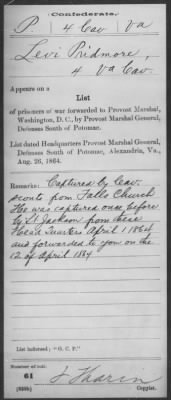 Confederate.
P. 4 Cav Va
Levi Pridmore,
4 Va Cav.
Appears on a
List
of prisoners of war forwarded to Provost Marshal,
Washington, D. C., by Provost Marshal General,
Defenses South of Potomac.
List dated Headquarters Provost Marshal General,
Defenses South of Potomac, Alexandria, Va.,
Aug. 26, 1864.
Remarks: Captured by Cav
scouts from Falls Church
He was captured once before
by Lt Jackson from these
Head Quarters April 1 1864
and forwarded to you on the
12 of April 1864
List indorsed: "O. C. P."
Number of roll:
61
Copyist.